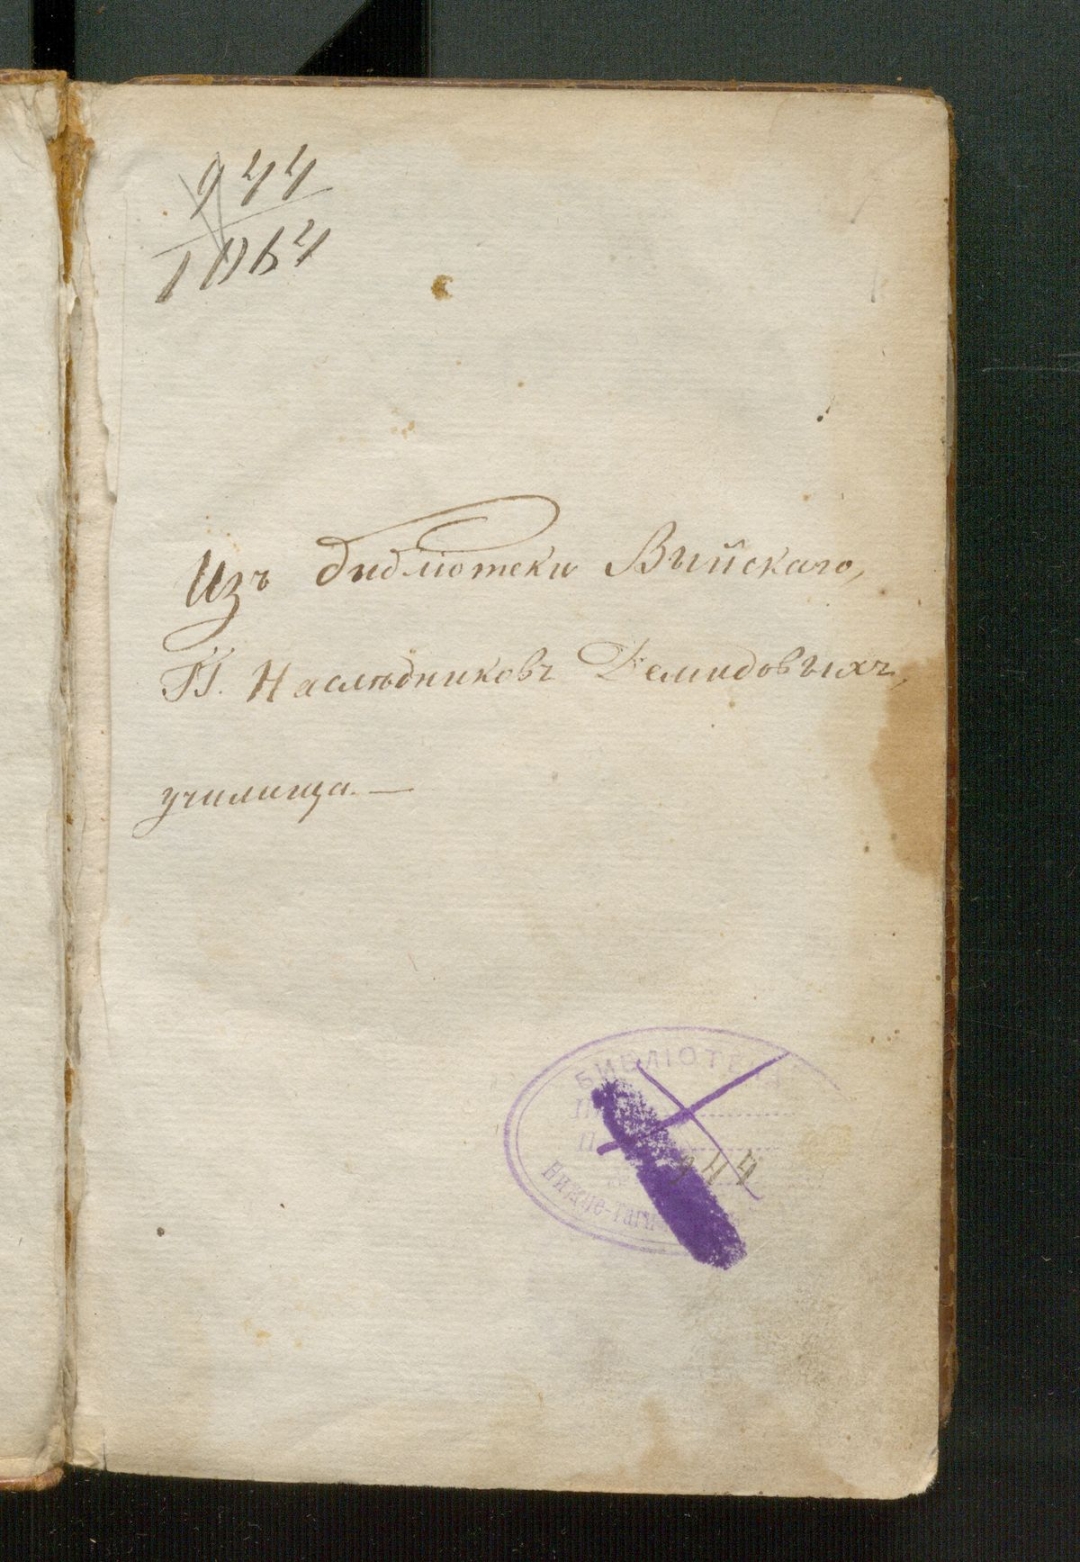 944
1064
Изъ библіотеки Выйскаго,
ГГ. Наслѣдниковъ Демидовыхъ,
училища. —
БИБЛІОТЕКА
944
Нижне-таги